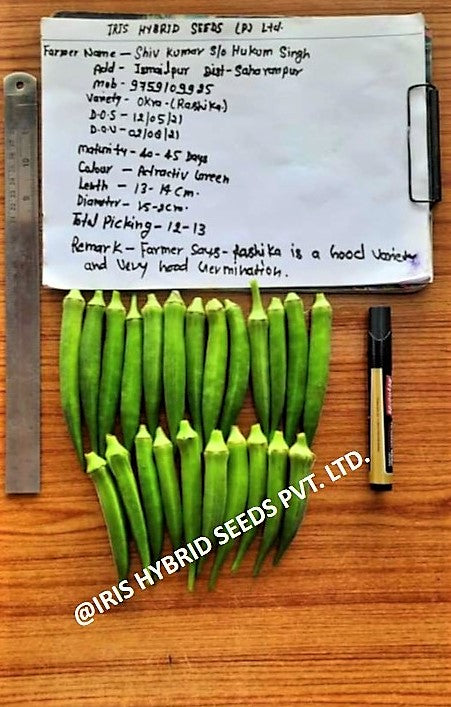 IRIS HYBRID SEEDS (P) Ltd.
Farmer Name - Shiv Kumar S/o Hukum Singh
Add - Ismailpur Dist - Saharanpur
Mob - 9759109985
Variety - Okra - (Rashika)
D.O.S - 12/05/21
D.O.V - 02/08/21
Maturity - 40 - 45 Days
Colour - Attractiv Green
Lenth - 13 - 14 cm.
Diameter - 1.5 - 2 cm.
Total Picking - 12 - 13
Remark - Farmer Says - Rashika is a Good Variety
and Very Good Germination.
@IRIS HYBRID SEEDS PVT. LTD.